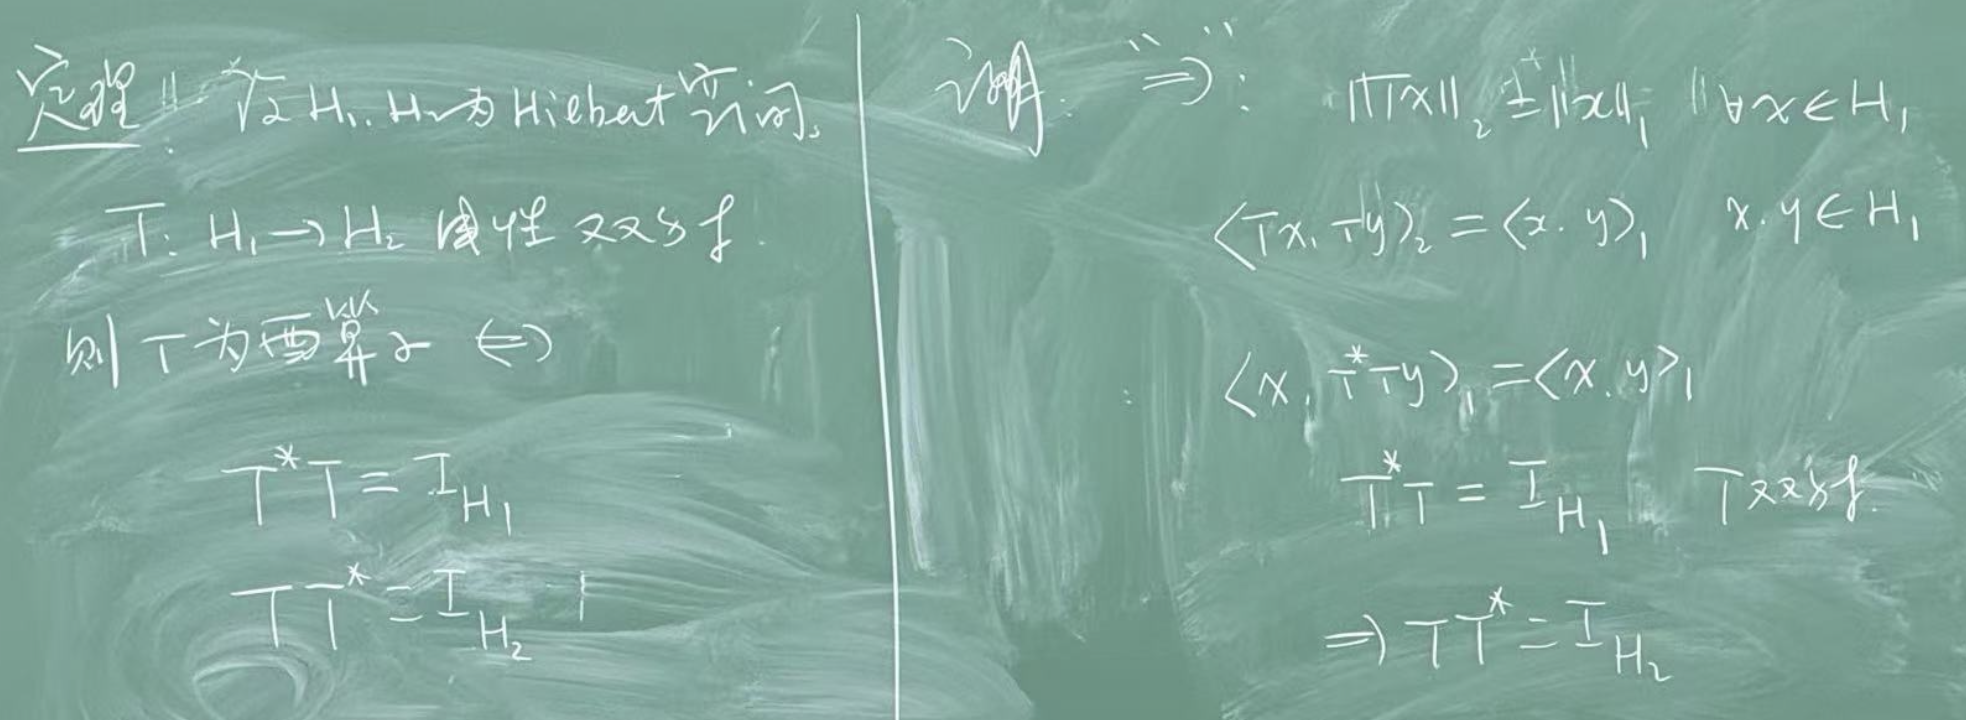 定理: 设 H₁, H₂ 为 Hilbert 空间,
T: H₁ → H₂ 线性双射.
则 T 为酉算子 ⟺
T*T = I_{H₁}
TT* = I_{H₂}
证明: "⇒": ‖Tx‖₂ = ‖x‖₁ ∀x∈H₁
⟨Tx, Ty⟩₂ = ⟨x, y⟩₁ x, y ∈ H₁
⟨x, T*Ty⟩₁ = ⟨x, y⟩₁
T*T = I_{H₁} T双射.
⇒ TT* = I_{H₂}